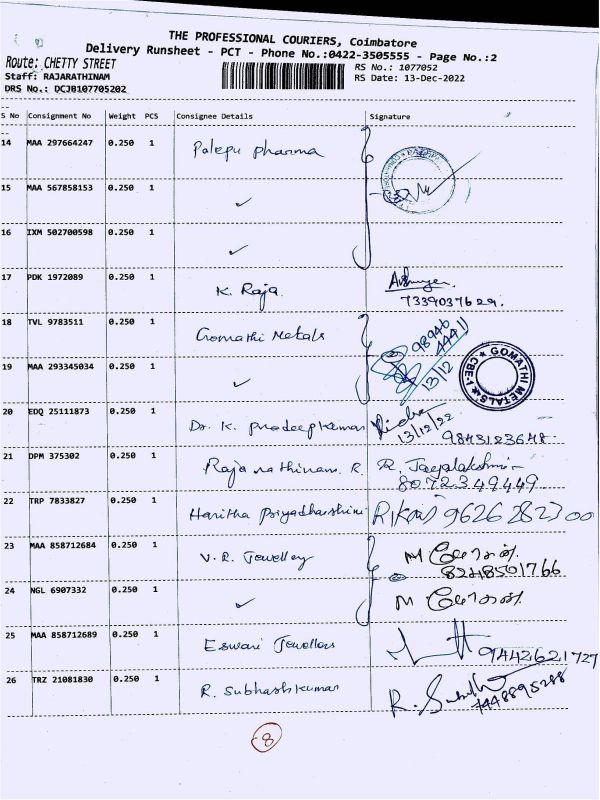 THE PROFESSIONAL COURIERS, Coimbatore
Delivery Runsheet - PCT - Phone No.:0422-3505555 - Page No.:2
Route: CHETTY STREET
RS No.: 1077052
Staff: RAJARATHINAM
RS Date: 13-Dec-2022
DRS No.: DCJB107705202
S No Consignment No Weight PCS Consignee Details Signature
14 MAA 297664247 0.250 1 Palepu pharma
15 MAA 567858153 0.250 1 ✓
16 IXM 502700598 0.250 1 ✓
17 PDK 1972089 0.250 1 K. Raja.
7339037629.
18 TVL 9783511 0.250 1 Gomathi Metals
98946
44411
13/12
GOMATHI METALS ★ CBE-1 ★
19 MAA 293345034 0.250 1 ✓
20 EDQ 25111873 0.250 1 Dr. K. Pradeepkumar
13/12/22
9843123648.
21 DPM 375302 0.250 1 Rajarathinam. R. R. Jaeyalakshmi
8072349449
22 TRP 7833827 0.250 1 Haritha Priyadharshini 9626282300
23 MAA 858712684 0.250 1 V.R. Jewellery
8248501766
24 NGL 6907332 0.250 1 ✓
25 MAA 858712689 0.250 1 Eswari Jewellers
9442621727
26 TRZ 21081830 0.250 1 R. Subhashkumar
7448895288
8